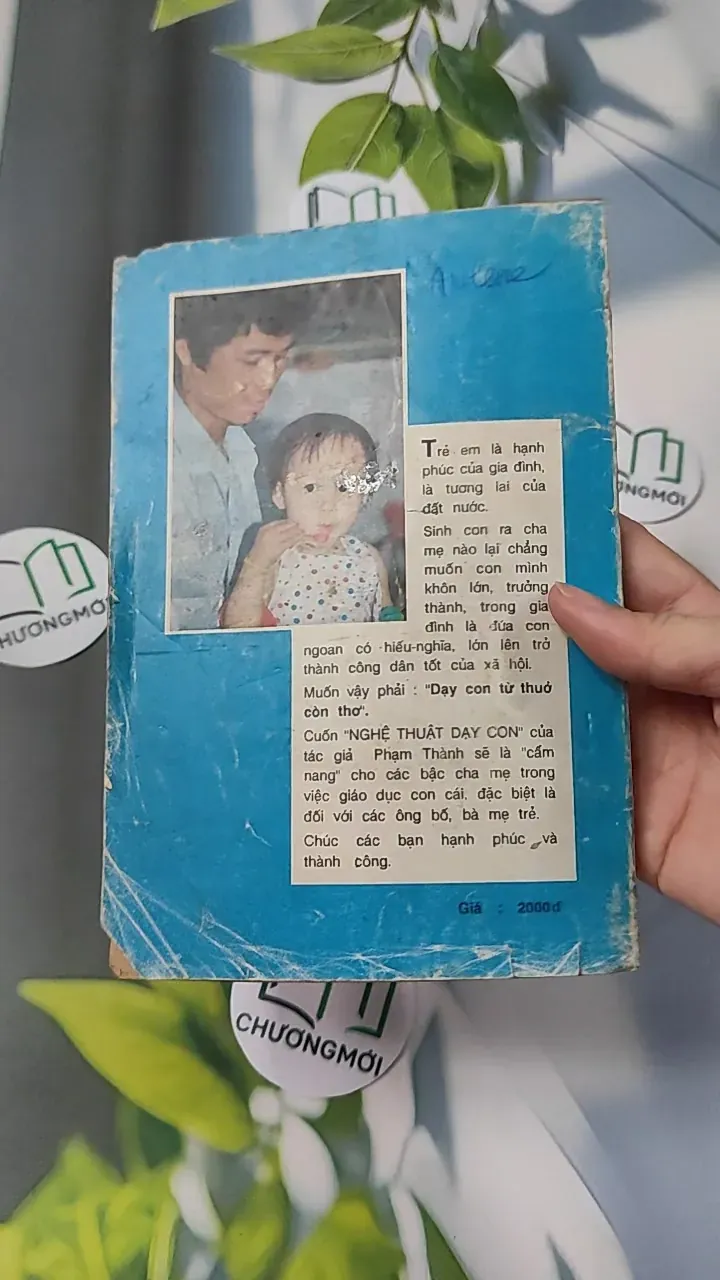 Trẻ em là hạnh
phúc của gia đình,
là tương lai của
đất nước.
Sinh con ra cha
mẹ nào lại chẳng
muốn con mình
khôn lớn, trưởng
thành, trong gia
đình là đứa con
ngoan có hiếu-nghĩa, lớn lên trở
thành công dân tốt của xã hội.
Muốn vậy phải : "Dạy con từ thuở
còn thơ".
Cuốn "NGHỆ THUẬT DẠY CON" của
tác giả Phạm Thành sẽ là "cẩm
nang" cho các bậc cha mẹ trong
việc giáo dục con cái, đặc biệt là
đối với các ông bố, bà mẹ trẻ.
Chúc các bạn hạnh phúc và
thành công.
Giá : 2000đ
HƯƠNGMỚI
ƠNGMỚI
CHƯƠNGMỚI